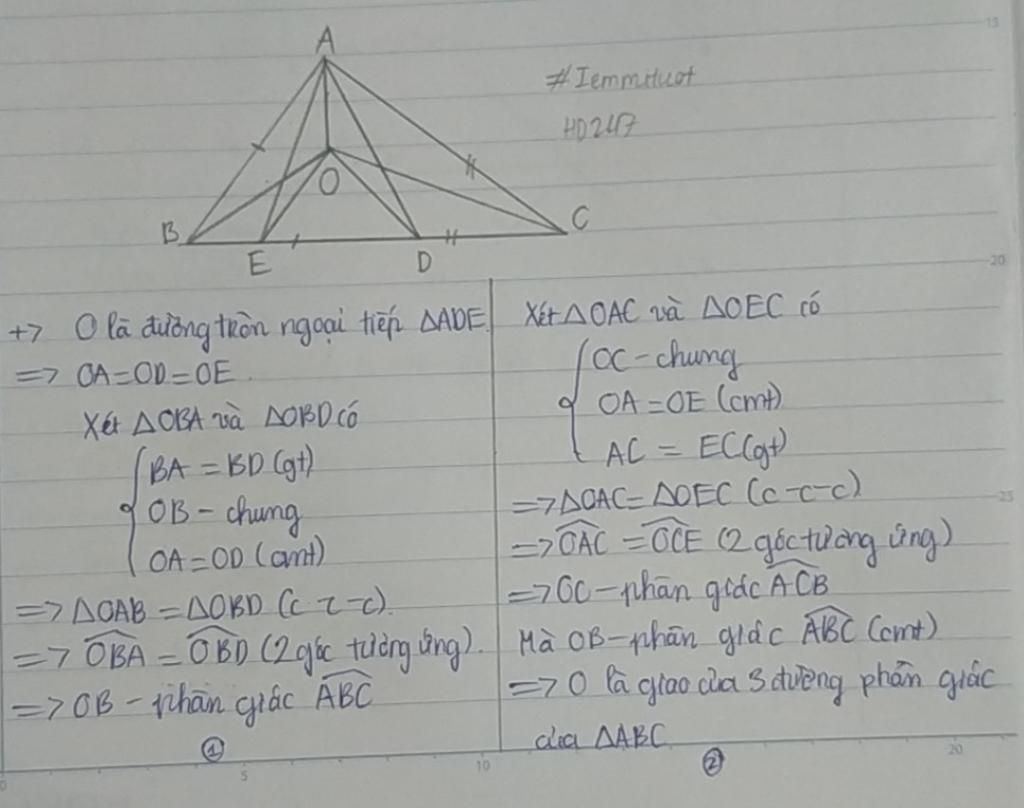 A
#Iemmituot
HD247
O
B
C
E
D
+> O là đường tròn ngoại tiếp ΔADE
=> OA=OD=OE.
Xét ΔOBA và ΔOBD có
BA = BD (gt)
OB - chung
OA=OD (cmt)
=> ΔOAB = ΔOBD (c-c-c).
=> OBA = OBD (2 góc tương ứng).
=> OB - phân giác ABC
①
Xét ΔOAC và ΔOEC có
OC - chung
OA = OE (cmt)
AC = EC (gt)
=> ΔOAC = ΔOEC (c-c-c)
=> OAC = OCE (2 góc tương ứng)
=> OC - phân giác ACB
Mà OB - phân giác ABC (cmt)
=> O là giao của 3 đường phân giác
của ΔABC
②
15
20
25
0
5
10
20